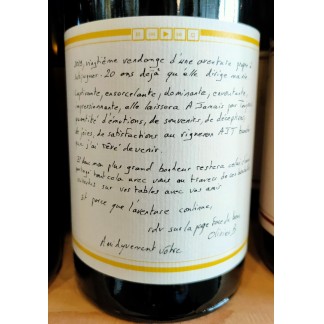 2019, vingtième vendange d'une aventure
20 ans déjà qu'elle dirige
captivante, ensorcelante, dominante, envoutante,
impressionnante, elle laissera A Jamais
quantité d'émotions, de souvenirs, de déceptions,
de joies, de satisfactions au vigneron
que j'ai rêvé devenir.
Et mon plus grand bonheur restera
partagé tout cela avec vous au travers de ces
sur vos tables avec vos amis
Et parce que l'aventure continue,
rdv sur la page
Amdyvement Vôtre
Olivier